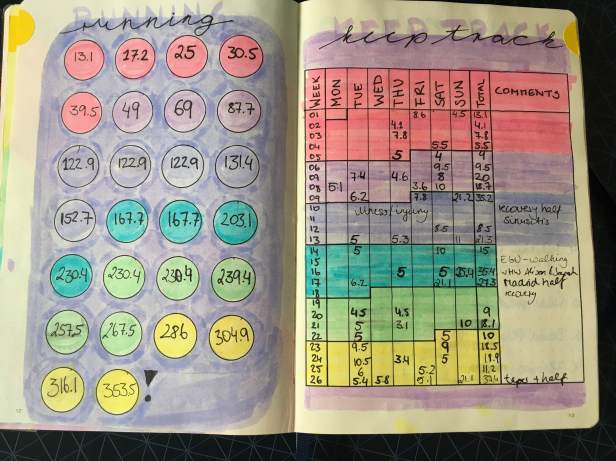 RUNNING
running
13.1 17.2 25 30.5
39.5 49 69 87.7
122.9 122.9 122.9 131.4
152.7 167.7 167.7 203.1
230.4 230.4 230.4 239.4
257.5 267.5 286 304.9
316.1 353.5 !
KEEP TRACK
keep track
WEEK MON TUE WED THU FRI SAT SUN TOTAL COMMENTS
01 8.6 4.5 13.1
02 4.1 4.1
03 7.8 7.8
04 5.5 5.5
05 5 4 9
06 9.5 9.5
07 7.4 4.6 8 20
08 5.1 3.6 10 18.7
09 6.2 7.8 21.2 35.2
10 recovery half
11 illness/injury sinusitis
12 8.5 8.5
13 5 5.3 11 21.3
14 5 10 15
15 EGU-walking
16 5 5 25.4 35.4
17 6.2 21.1 27.3 Madrid half
18 recovery
20 4.5 4.5 9
21 5 3.1 10 18.1
22 5 5 10
23 9.5 9 18.5
24 10.5 3.4 5 18.9
25 6 5.2 11.2
26 5.4 5.8 5.1 21.1 37.4 + half